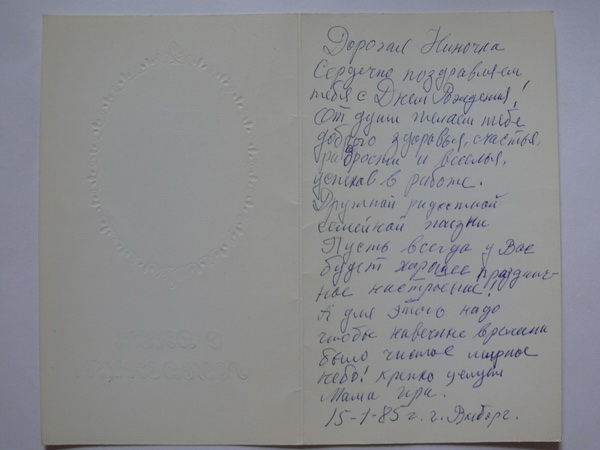 Дорогая Ниночка
Сердечно поздравляем
тебя с Днем Рождения!
От души желаем тебе
доброго здоровья, счастья,
радости и веселья,
успехов в работе.
Дружной радостной
семейной жизни
Пусть всегда у Вас
будет хорошее празднич-
ное настроение!
А для этого надо
чтобы навечные времена
было чистое мирное
небо! крепко целуем
Мама
15-1-85 г. г. Выборг.